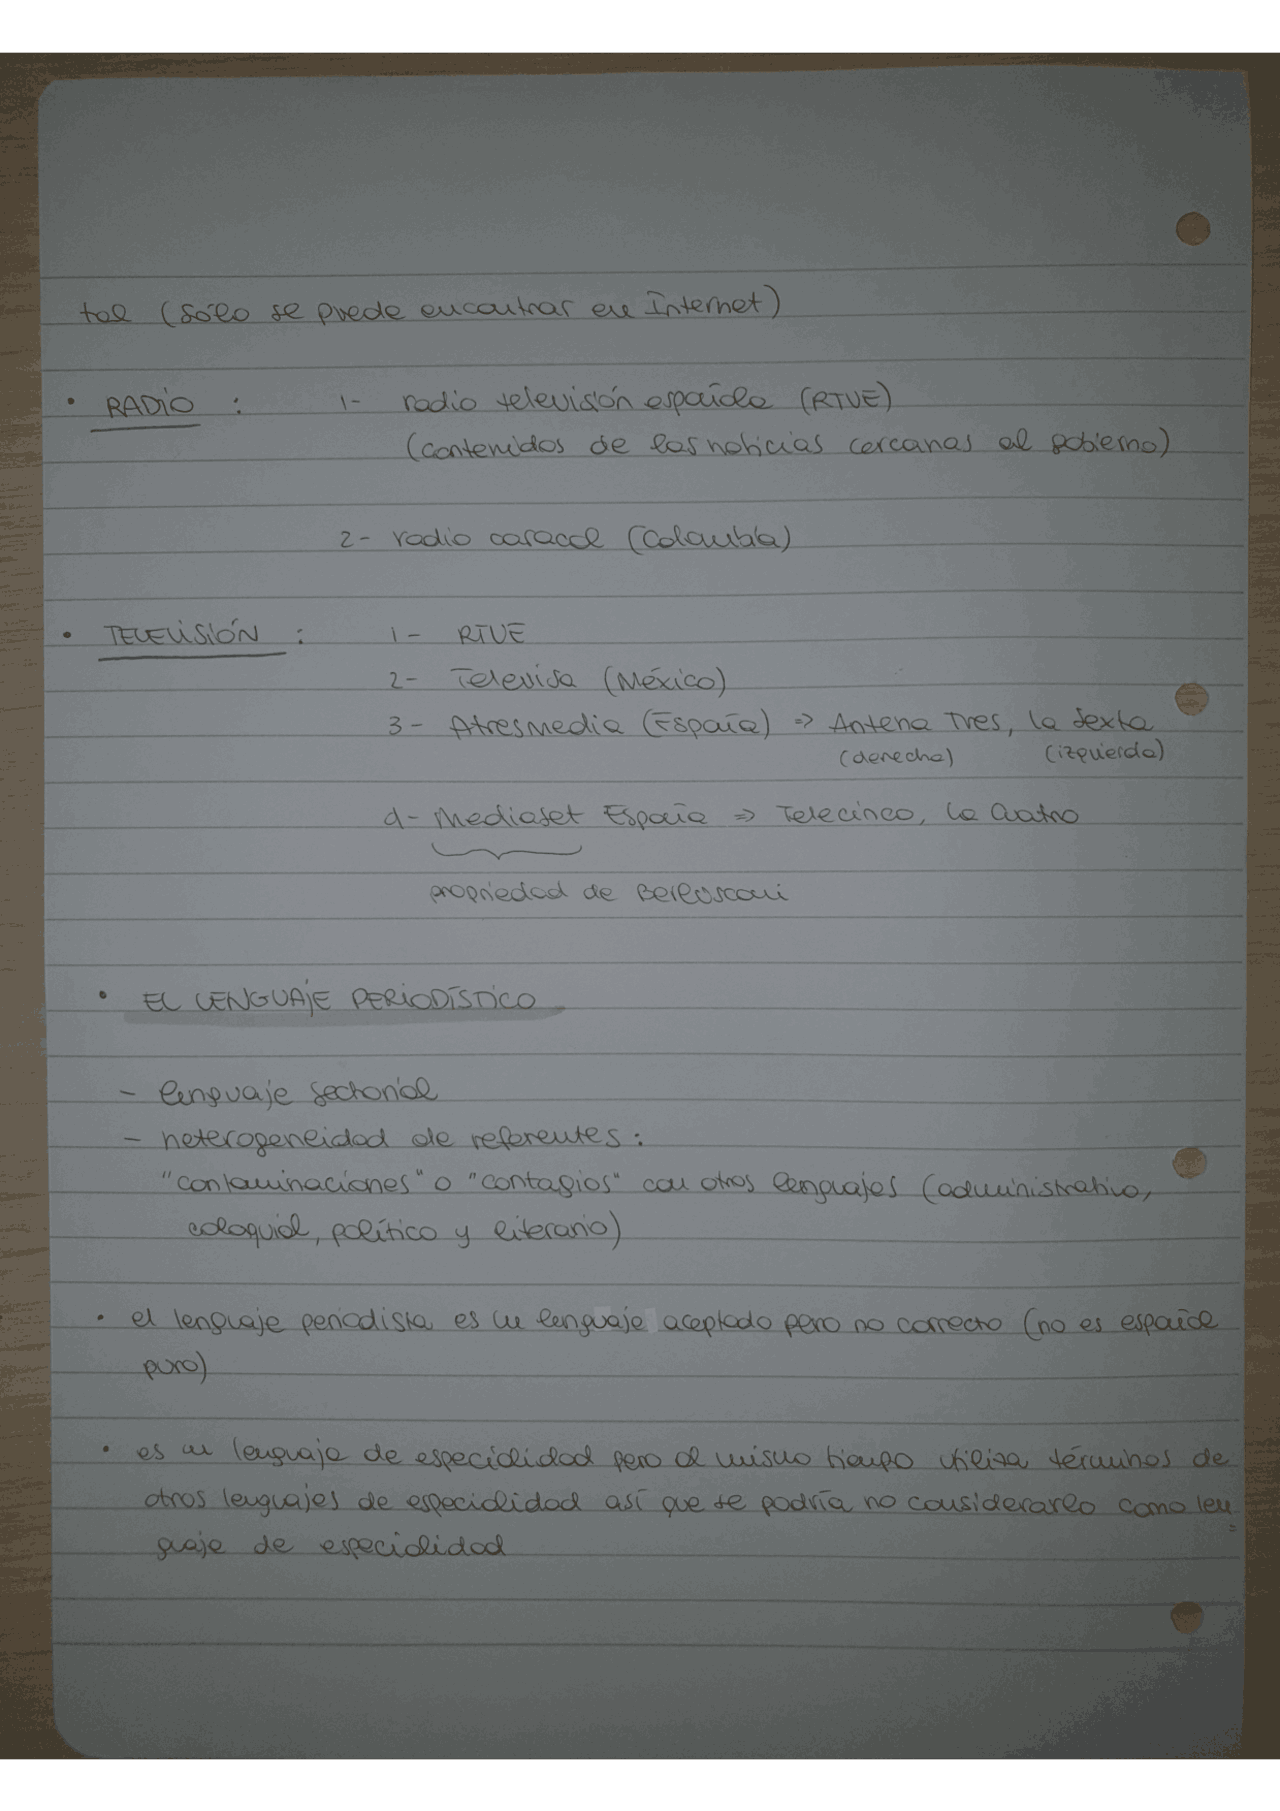 tal (sólo se puede encontrar en Internet)
• RADIO : 1- radio televisión española (RTVE)
(contenidos de las noticias cercanas al gobierno)
2- radio caracol (Colombia)
• TELEVISIÓN : 1- RTVE
2- Televisa (México)
3- Atresmedia (España) => Antena Tres, la Sexta
(derecha) (izquierda)
4- Mediaset España => Telecinco, la Cuatro
propriedad de Berlusconi
• EL LENGUAJE PERIODÍSTICO
- lenguaje sectorial
- heterogeneidad de referentes:
"contaminaciones" o "contagios" con otros lenguajes (administrativo,
coloquial, político y literario)
• el lenguaje periodista es un lenguaje aceptado pero no correcto (no es español
puro)
• es un lenguaje de especialidad pero al mismo tiempo utiliza términos de
otros lenguajes de especialidad así que se podría no considerarlo como len=
guaje de especialidad